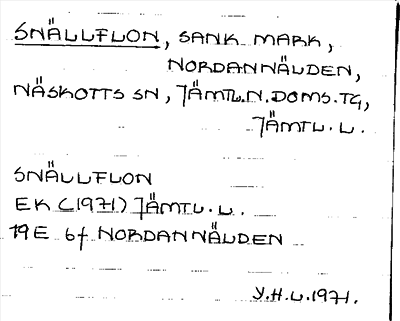 SNÄLLFLON, SANK MARK,
NORDANNÄLDEN,
NÄSKOTTS SN, JÄMTL.N.DOMS.TG,
JÄMTL.L.
SNÄLLFLON
EK (1971) JÄMTL.L.
19E 6f NORDANNÄLDEN
Y.H.L.1971.